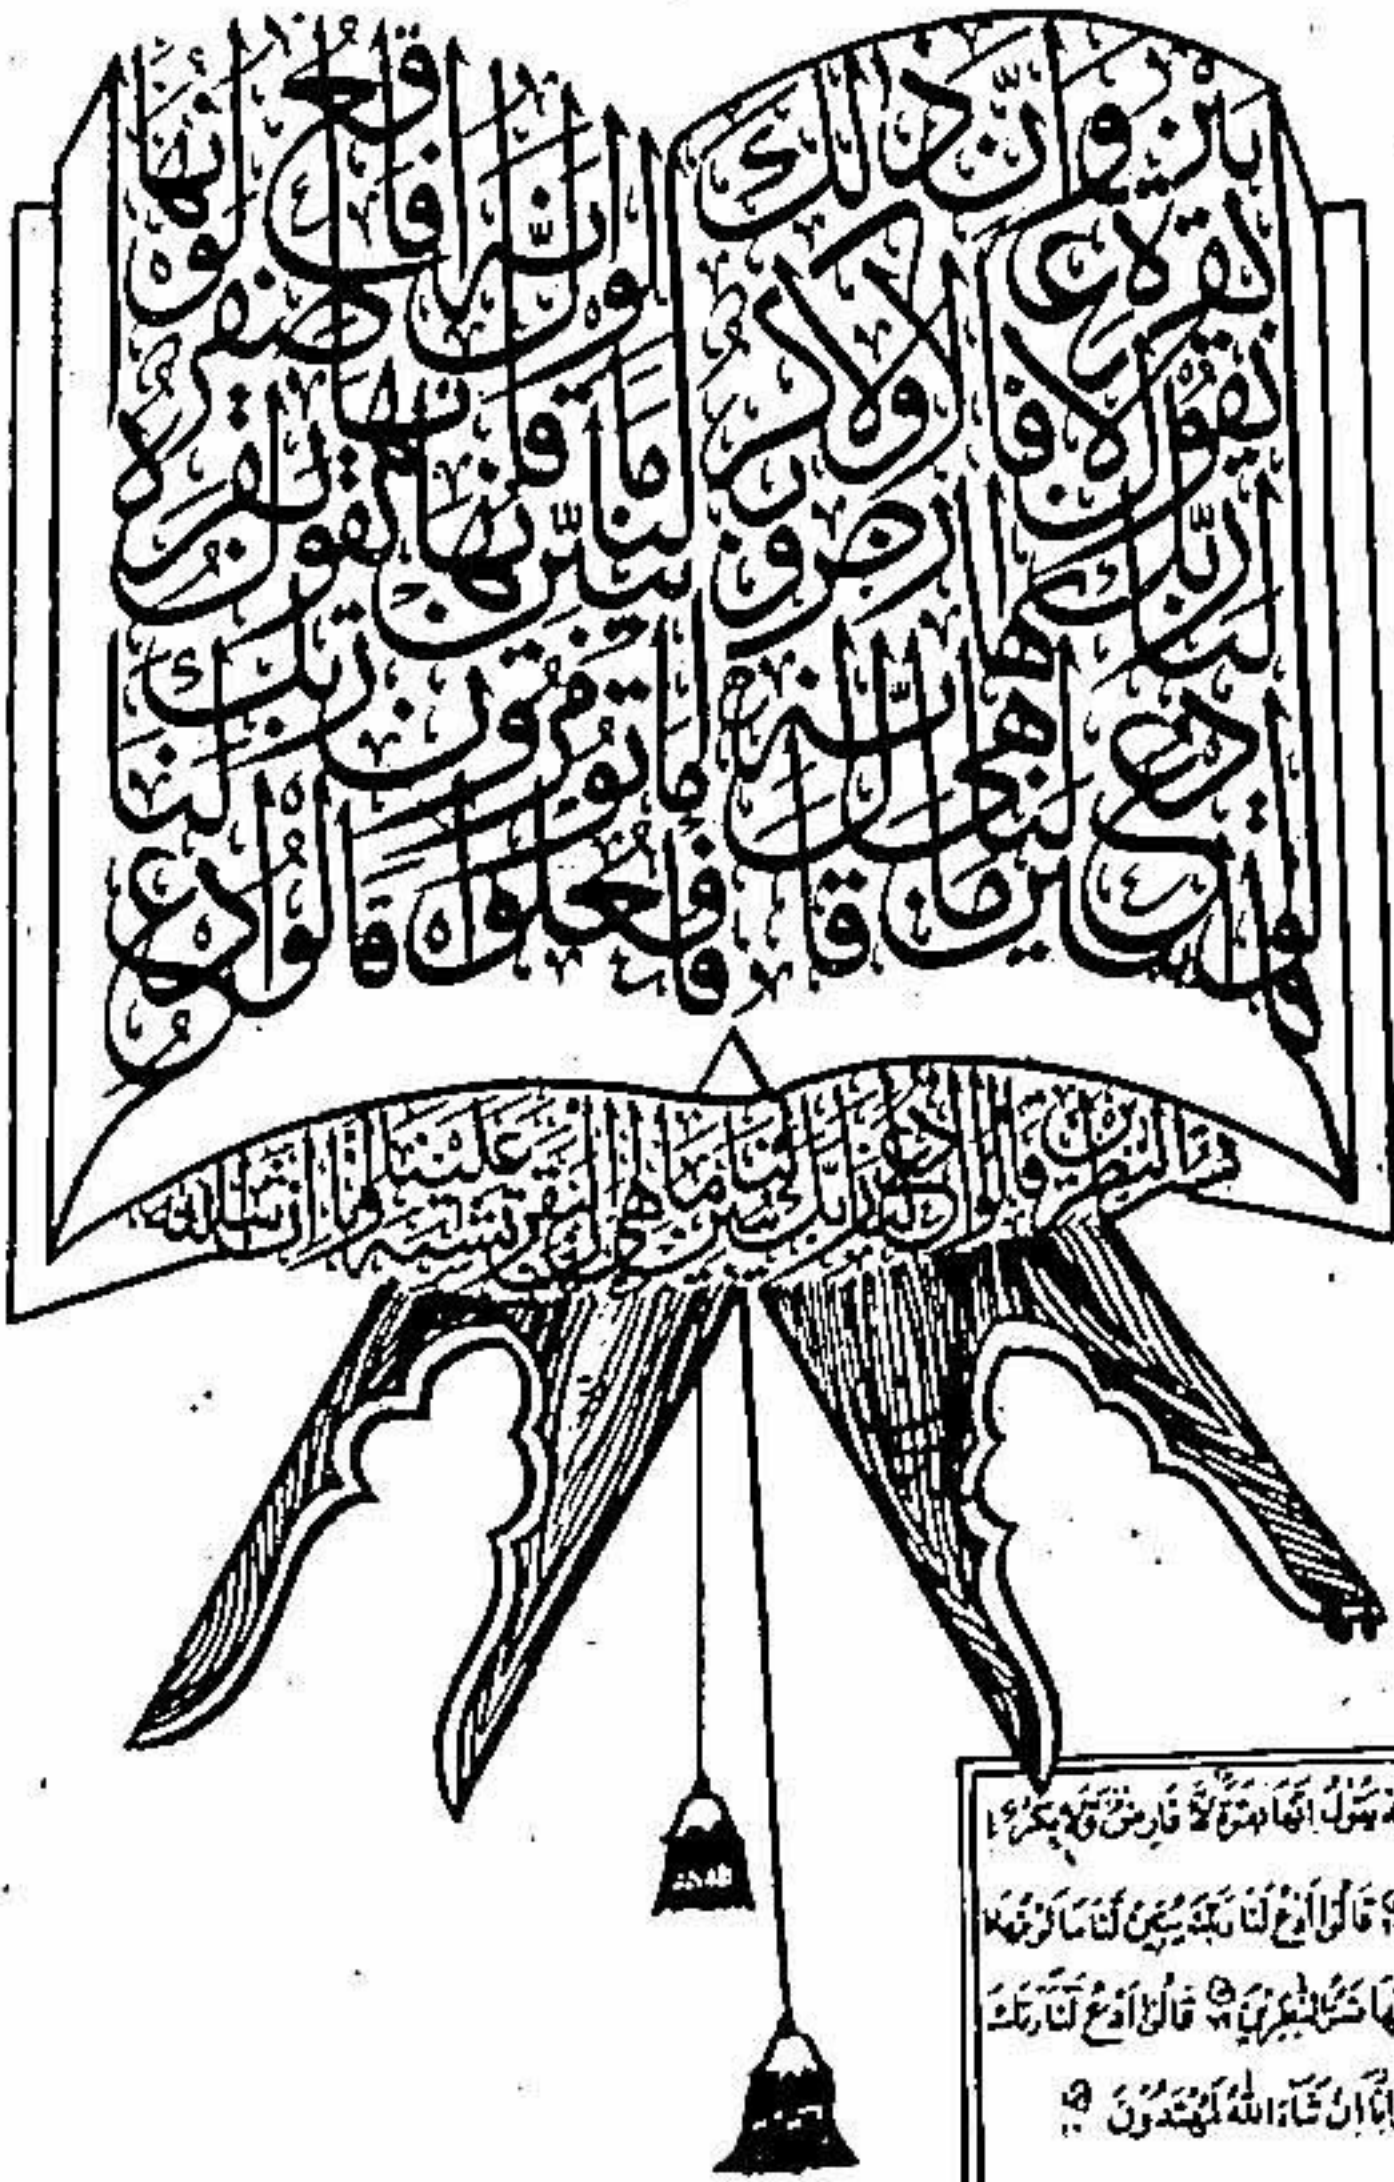 قالوا ادع لنا ربك يبين لنا ما هي قال انه
يقول انها بقرة لا فارض ولا بكر
عوان بين ذلك
فافعلوا ما تؤمرون قالوا ادع لنا ربك
يبين لنا ما لونها قال انه يقول انها بقرة
صفراء فاقع لونها
تسر النظرين قالوا ادع لنا ربك يبين لنا ما هي ان البقر تشبه علينا وانا ان شاء الله
يَقُولُ اِنَّهَا بَقَرَةٌ لَّا فَارِضٌ وَّلَا بِكْرٌ
قَالُوا ادْعُ لَنَا رَبَّكَ يُبَيِّنْ لَّنَا مَا لَوْنُهَا
تَسُرُّ النّٰظِرِيْنَ قَالُوا ادْعُ لَنَا رَبَّكَ
اِنَّا اِنْ شَآءَ اللّٰهُ لَمُهْتَدُوْنَ